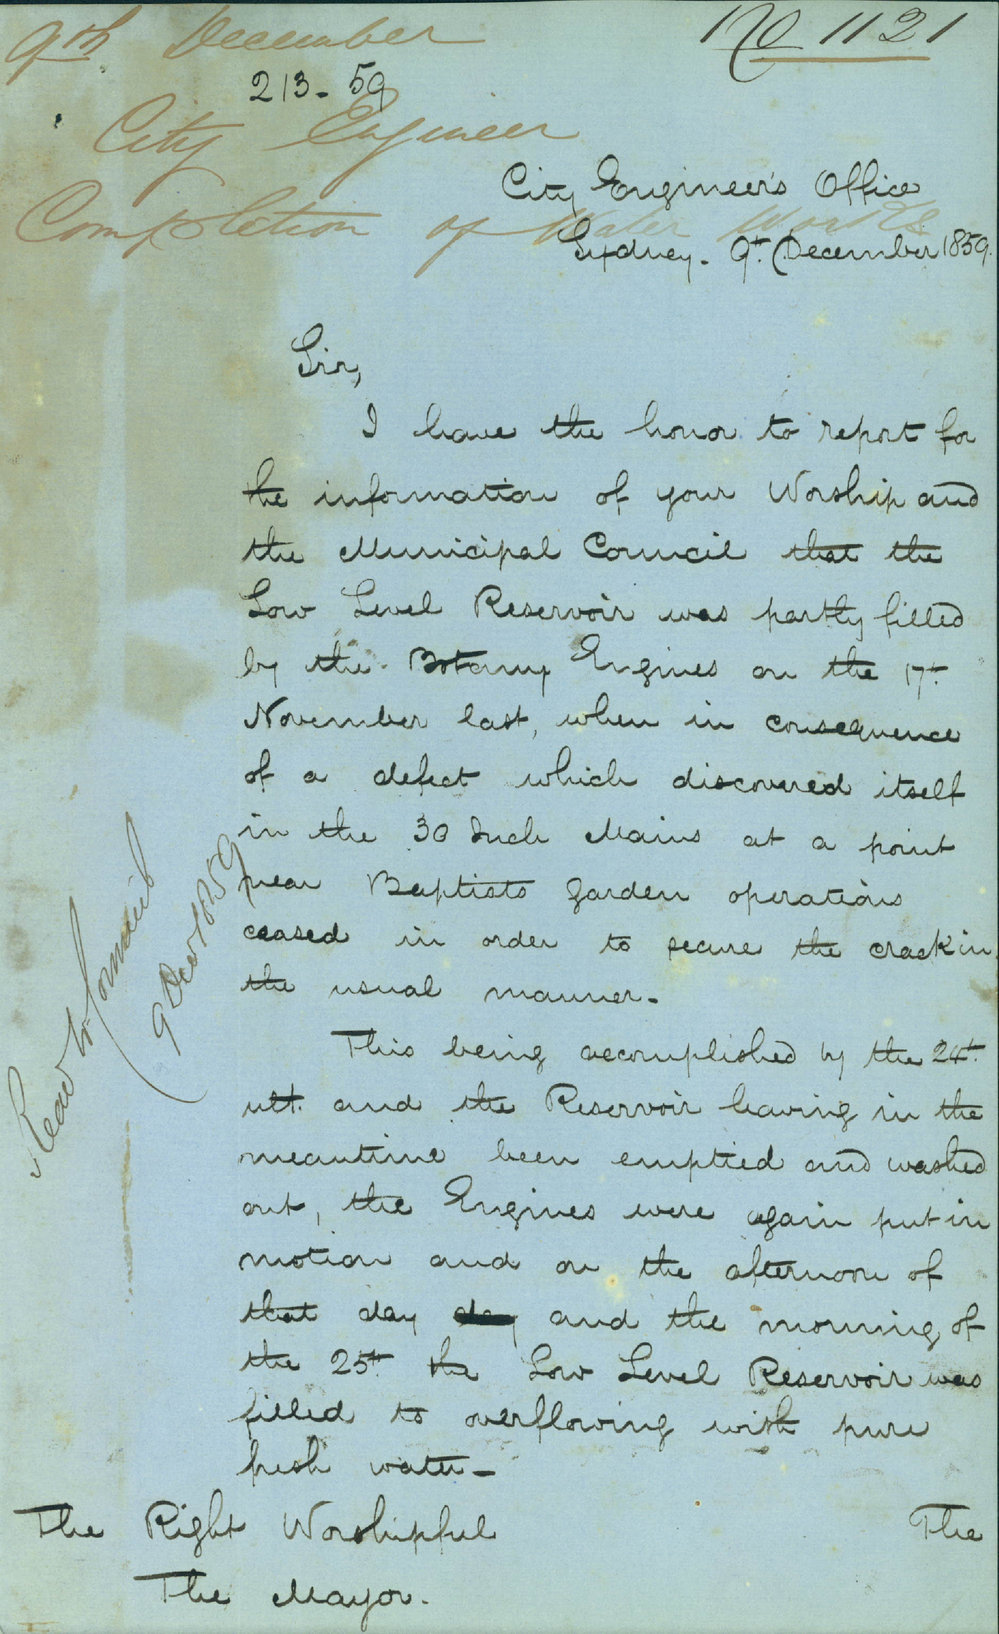 9th December
No 1121
213-59
City Engineer
Completion of Water Works
City Engineer's Office
Sydney. 9th December 1859.
Sir,
I have the honor to report for
the information of your Worship and
the Municipal Council that the
Low Level Reservoir was partly filled
by the Botany Engines on the 17th
November last, when in consequence
of a defect which discovered itself
in the 30 Inch Mains at a point
near Baptists garden operations
ceased in order to secure the crack in
the usual manner.
This being accomplished by the 24th
ult. and the Reservoir having in the
meantime been emptied and washed
out, the Engines were again put in
motion and on the afternoon of
that day day and the morning of
the 25th the Low Level Reservoir was
filled to overflowing with pure
fresh water.
The Right Worshipful
The Mayor.
The
Read in Council
9 Decr 1859